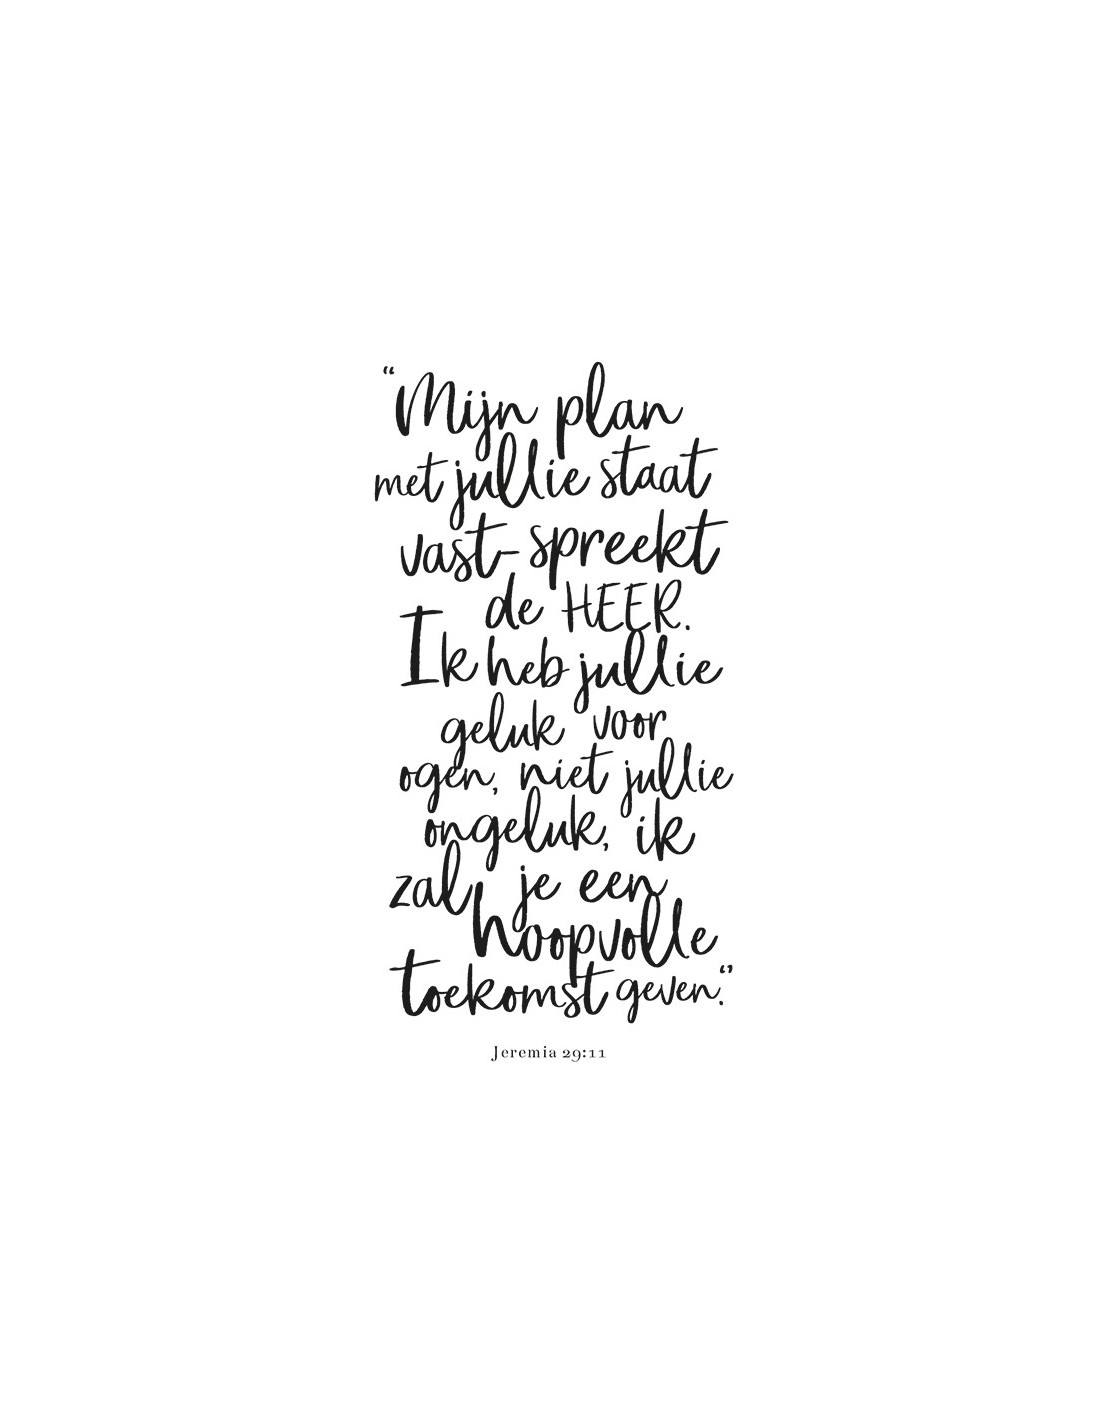 “Mijn plan
met jullie staat
vast- spreekt
de HEER.
Ik heb jullie
geluk voor
ogen, niet jullie
ongeluk, ik
zal je een
hoopvolle
toekomst geven.”
Jeremia 29:11